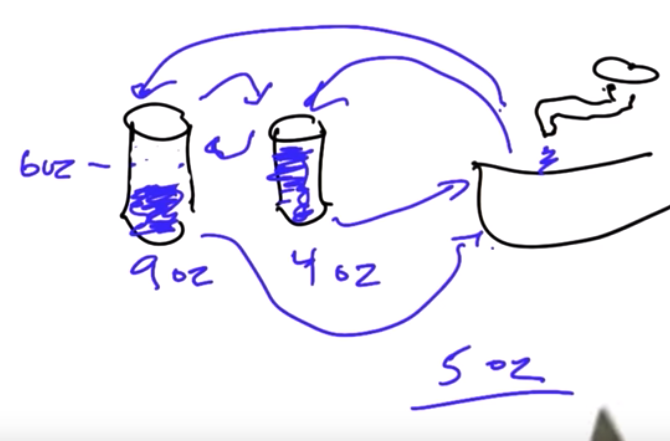 6oz
9 oz
4 oz
5 oz